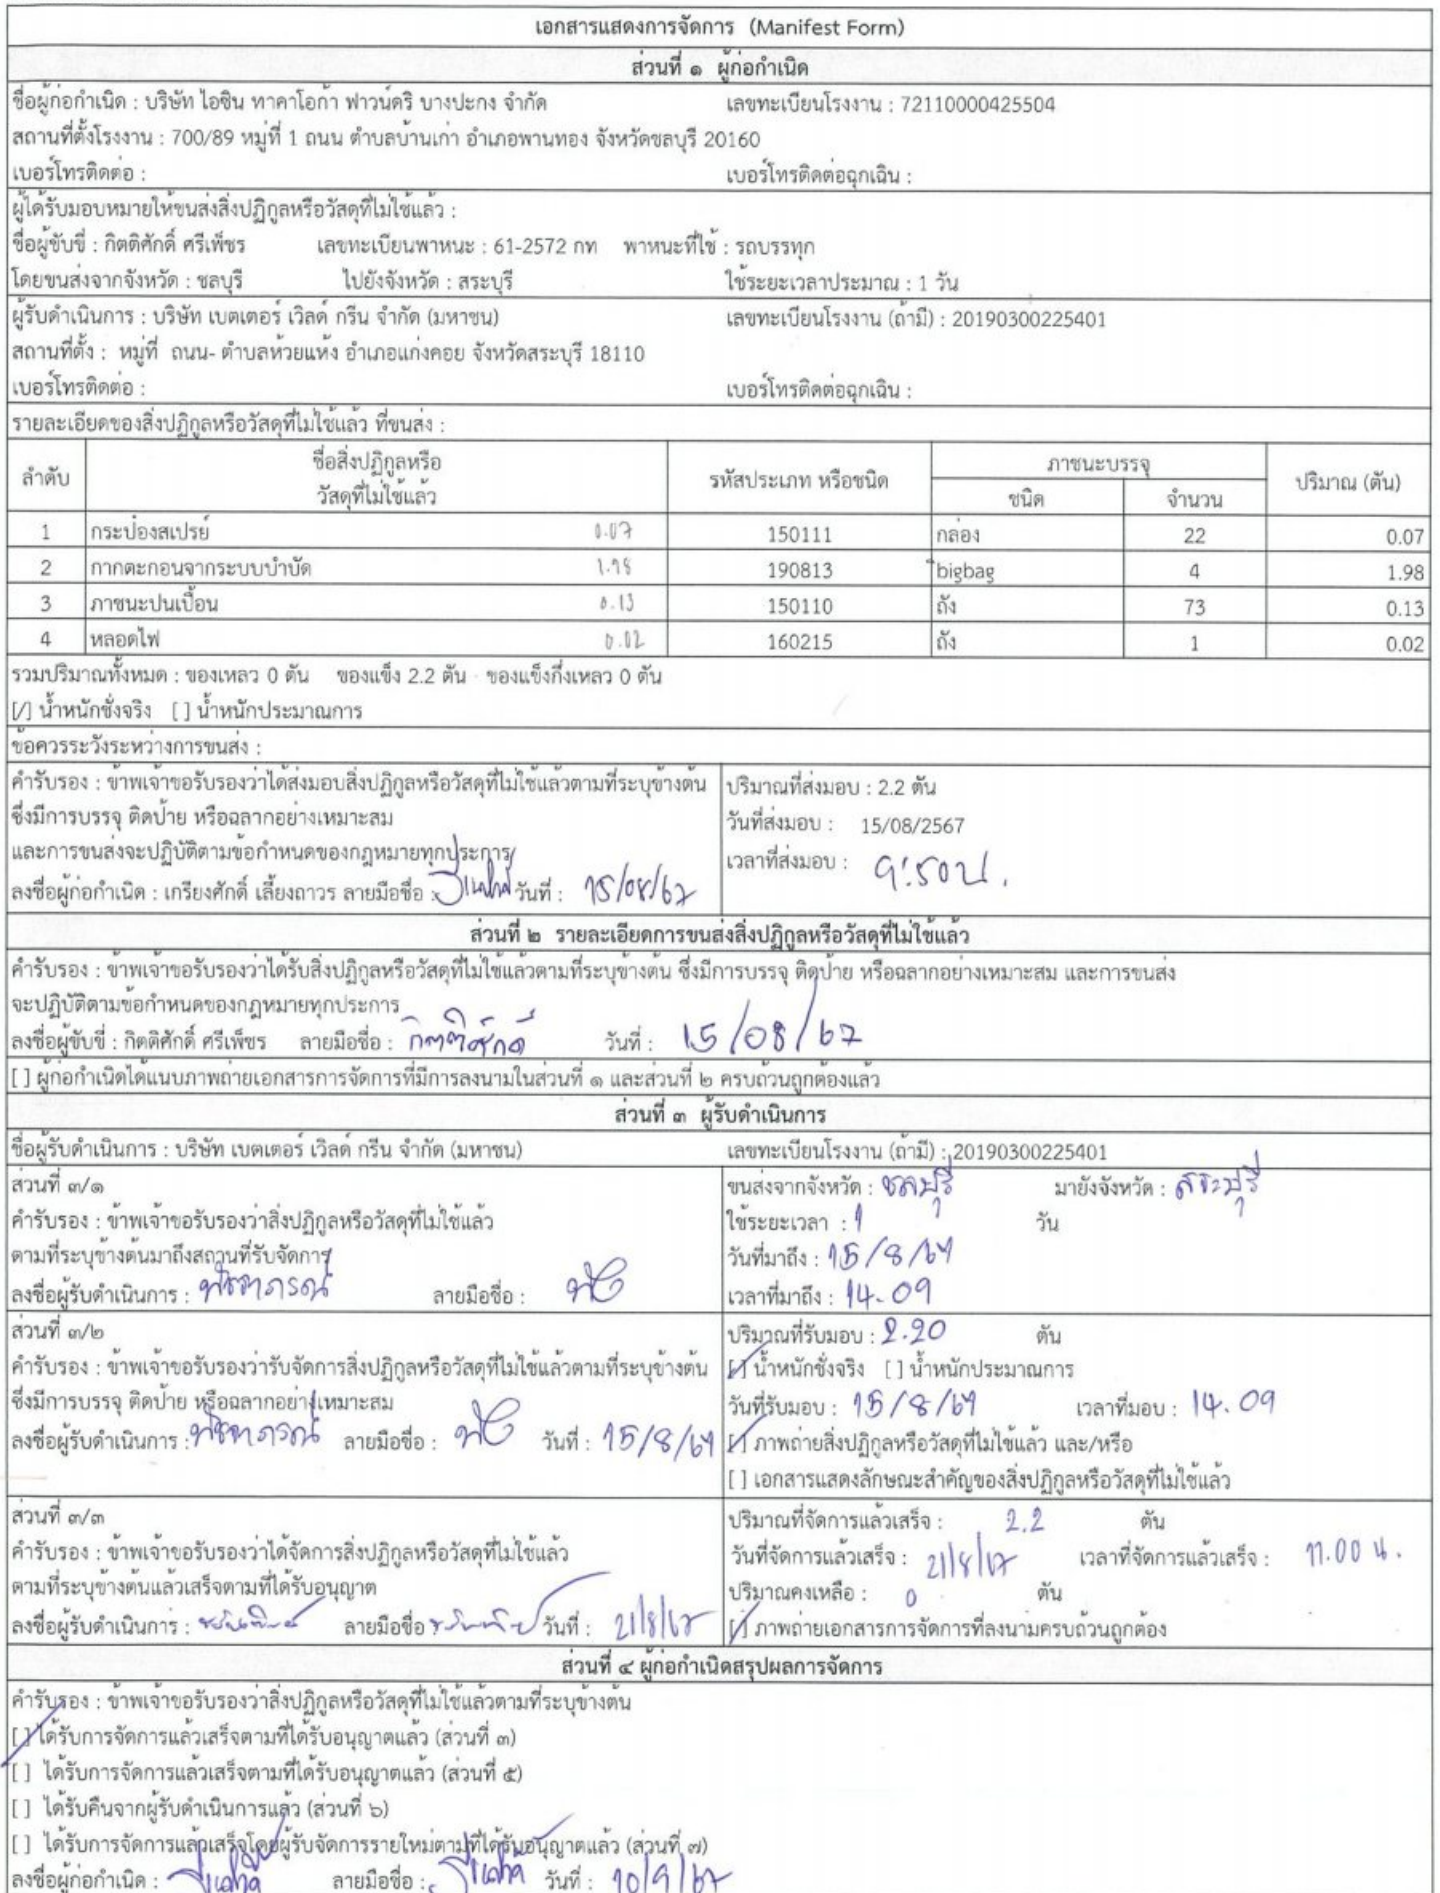 เอกสารแสดงการจัดการ (Manifest Form)
ส่วนที่ ๑ ผู้ก่อกำเนิด
ชื่อผู้ก่อกำเนิด : บริษัท ไอซิน ทาคาโอก้า ฟาวน์ดริ บางปะกง จำกัด เลขทะเบียนโรงงาน : 72110000425504
สถานที่ตั้งโรงงาน : 700/89 หมู่ที่ 1 ถนน ตำบลบ้านเก่า อำเภอพานทอง จังหวัดชลบุรี 20160
เบอร์โทรติดต่อ : เบอร์โทรติดต่อฉุกเฉิน :
ผู้ได้รับมอบหมายให้ขนส่งสิ่งปฏิกูลหรือวัสดุที่ไม่ใช้แล้ว :
ชื่อผู้ขับขี่ : กิตติศักดิ์ ศรีเพ็ชร เลขทะเบียนพาหนะ : 61-2572 กท พาหนะที่ใช้ : รถบรรทุก
โดยขนส่งจากจังหวัด : ชลบุรี ไปยังจังหวัด : สระบุรี ใช้ระยะเวลาประมาณ : 1 วัน
ผู้รับดำเนินการ : บริษัท เบตเตอร์ เวิลด์ กรีน จำกัด (มหาชน) เลขทะเบียนโรงงาน (ถ้ามี) : 20190300225401
สถานที่ตั้ง : หมู่ที่ ถนน- ตำบลห้วยแห้ง อำเภอแก่งคอย จังหวัดสระบุรี 18110
เบอร์โทรติดต่อ : เบอร์โทรติดต่อฉุกเฉิน :
รายละเอียดของสิ่งปฏิกูลหรือวัสดุที่ไม่ใช้แล้ว ที่ขนส่ง :
ลำดับ ชื่อสิ่งปฏิกูลหรือ วัสดุที่ไม่ใช้แล้ว รหัสประเภท หรือชนิด ภาชนะบรรจุ ปริมาณ (ตัน)
ชนิด จำนวน
1 กระป๋องสเปรย์ 0.07 150111 กล่อง 22 0.07
2 กากตะกอนจากระบบบำบัด 1.98 190813 bigbag 4 1.98
3 ภาชนะปนเปื้อน 0.13 150110 ถัง 73 0.13
4 หลอดไฟ 0.02 160215 ถัง 1 0.02
รวมปริมาณทั้งหมด : ของเหลว 0 ตัน ของแข็ง 2.2 ตัน ของแข็งกึ่งเหลว 0 ตัน
[/] น้ำหนักชั่งจริง [ ] น้ำหนักประมาณการ
ข้อควรระวังระหว่างการขนส่ง :
คำรับรอง : ข้าพเจ้าขอรับรองว่าได้ส่งมอบสิ่งปฏิกูลหรือวัสดุที่ไม่ใช้แล้วตามที่ระบุข้างต้น ปริมาณที่ส่งมอบ : 2.2 ตัน
ซึ่งมีการบรรจุ ติดป้าย หรือฉลากอย่างเหมาะสม วันที่ส่งมอบ : 15/08/2567
และการขนส่งจะปฏิบัติตามข้อกำหนดของกฎหมายทุกประการ เวลาที่ส่งมอบ : 9:50 น.
ลงชื่อผู้ก่อกำเนิด : เกรียงศักดิ์ เลี้ยงถาวร ลายมือชื่อ : วันที่ : 15/08/67
ส่วนที่ ๒ รายละเอียดการขนส่งสิ่งปฏิกูลหรือวัสดุที่ไม่ใช้แล้ว
คำรับรอง : ข้าพเจ้าขอรับรองว่าได้รับสิ่งปฏิกูลหรือวัสดุที่ไม่ใช้แล้วตามที่ระบุข้างต้น ซึ่งมีการบรรจุ ติดป้าย หรือฉลากอย่างเหมาะสม และการขนส่ง
จะปฏิบัติตามข้อกำหนดของกฎหมายทุกประการ
ลงชื่อผู้ขับขี่ : กิตติศักดิ์ ศรีเพ็ชร ลายมือชื่อ : กิตติศักดิ์ วันที่ : 15/08/67
[ ] ผู้ก่อกำเนิดได้แนบภาพถ่ายเอกสารการจัดการที่มีการลงนามในส่วนที่ ๑ และส่วนที่ ๒ ครบถ้วนถูกต้องแล้ว
ส่วนที่ ๓ ผู้รับดำเนินการ
ชื่อผู้รับดำเนินการ : บริษัท เบตเตอร์ เวิลด์ กรีน จำกัด (มหาชน) เลขทะเบียนโรงงาน (ถ้ามี) : 20190300225401
ส่วนที่ ๓/๑ ขนส่งจากจังหวัด : ชลบุรี มายังจังหวัด : สระบุรี
คำรับรอง : ข้าพเจ้าขอรับรองว่าสิ่งปฏิกูลหรือวัสดุที่ไม่ใช้แล้ว ใช้ระยะเวลา : 1 วัน
ตามที่ระบุข้างต้นมาถึงสถานที่รับจัดการ วันที่มาถึง : 15/8/67
ลงชื่อผู้รับดำเนินการ : ลายมือชื่อ : เวลาที่มาถึง : 14.09
ส่วนที่ ๓/๒ ปริมาณที่รับมอบ : 2.20 ตัน
คำรับรอง : ข้าพเจ้าขอรับรองว่ารับจัดการสิ่งปฏิกูลหรือวัสดุที่ไม่ใช้แล้วตามที่ระบุข้างต้น [/] น้ำหนักชั่งจริง [ ] น้ำหนักประมาณการ
ซึ่งมีการบรรจุ ติดป้าย หรือฉลากอย่างเหมาะสม วันที่รับมอบ : 15/8/67 เวลาที่มอบ : 14.09
ลงชื่อผู้รับดำเนินการ : ลายมือชื่อ : วันที่ : 15/8/67 [/] ภาพถ่ายสิ่งปฏิกูลหรือวัสดุที่ไม่ใช้แล้ว และ/หรือ
[ ] เอกสารแสดงลักษณะสำคัญของสิ่งปฏิกูลหรือวัสดุที่ไม่ใช้แล้ว
ส่วนที่ ๓/๓ ปริมาณที่จัดการแล้วเสร็จ : 2.2 ตัน
คำรับรอง : ข้าพเจ้าขอรับรองว่าได้จัดการสิ่งปฏิกูลหรือวัสดุที่ไม่ใช้แล้ว วันที่จัดการแล้วเสร็จ : 21/8/67 เวลาที่จัดการแล้วเสร็จ : 11.00 น.
ตามที่ระบุข้างต้นแล้วเสร็จตามที่ได้รับอนุญาต ปริมาณคงเหลือ : 0 ตัน
ลงชื่อผู้รับดำเนินการ : ลายมือชื่อ วันที่ : 21/8/67 [/] ภาพถ่ายเอกสารการจัดการที่ลงนามครบถ้วนถูกต้อง
ส่วนที่ ๔ ผู้ก่อกำเนิดสรุปผลการจัดการ
คำรับรอง : ข้าพเจ้าขอรับรองว่าสิ่งปฏิกูลหรือวัสดุที่ไม่ใช้แล้วตามที่ระบุข้างต้น
[/] ได้รับการจัดการแล้วเสร็จตามที่ได้รับอนุญาตแล้ว (ส่วนที่ ๓)
[ ] ได้รับการจัดการแล้วเสร็จตามที่ได้รับอนุญาตแล้ว (ส่วนที่ ๕)
[ ] ได้รับคืนจากผู้รับดำเนินการแล้ว (ส่วนที่ ๖)
[ ] ได้รับการจัดการแล้วเสร็จโดยผู้รับจัดการรายใหม่ตามที่ได้รับอนุญาตแล้ว (ส่วนที่ ๗)
ลงชื่อผู้ก่อกำเนิด : ลายมือชื่อ : วันที่ : 10/9/67